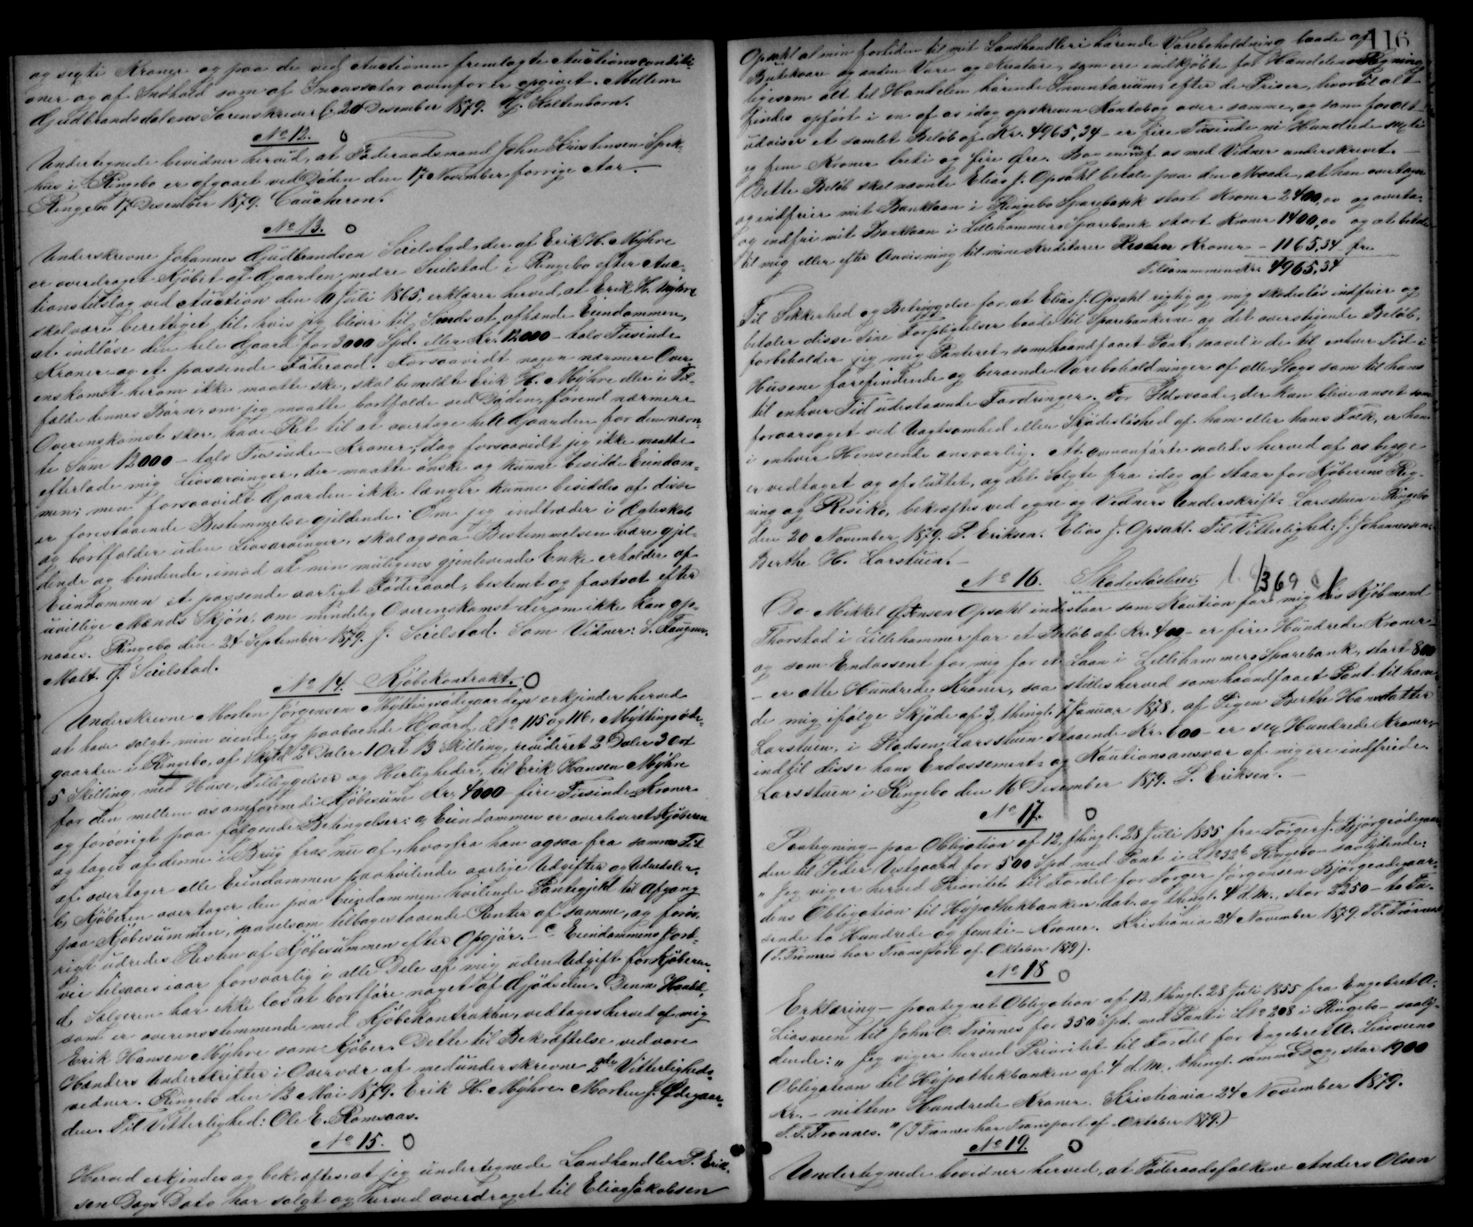 og segti Kroner og paa de ved Auctionen fremlagte Auctionsconditi-
oner og af Indhold som af Incassator ovenfor er opgivet. Mellem
Gudbrandsdalens Sorenskriveri 20 Desember 1879. Hj. Holtenborn.
No 12.
Undertegnede bevidner herved, at Føderaadsmand John Kristensen Spek-
hus i Ringebo er afgaaet ved Døden den 17 November forrige Aar.
Ringebo 17 Desember 1879. Caucheron.
No 13.
Underskrevne Johannes Gudbrandsen Seielstad, der af Erik H. Myhre
er overdraget Kjøbet af Gaarden nedre Seilstad i Ringebo efter Auc-
tionstilslag ved Auction den 10 Juli 1865, erklærer herved, at Erik H. Myhre
skal være berettiget til, hvis jeg bliver til Sinds at afhænde Eiendommen,
at indløse den hele Gaard for 3000 Spd. eller Kr. 12000 - tolv Tusinde
Kroner og et passende Føderaad. Forsaavidt nogen nærmere Over-
enskomst herom ikke maatte ske, skal bemeldte Erik H. Myhre eller i Til-
fælde dennes Børn, om jeg maatte bortfalde ved Døden, førend nærmere
Overenskomst sker, have Ret til at overtage hele Gaarden for den nævn-
te Sum 12000 - tolv Tusinde - Kroner, dog forsaavidt jeg ikke maatte
efterlade mig Livsarvinger, der maatte ønske og kunne besidde Eiendom-
men; men forsaavidt Gaarden ikke længer kunne besiddes af disse
er foranstaaende Bestemmelse gjældende. Om jeg indtræder i Ægteskab
og bortfalder uden Livsarvinger, skal ogsaa Bestemmelsen være gjæl-
dende og bindende, imod at min muligens gjenlevende Enke erholder af
Eiendommen et passende aarligt Føderaad, bestemt og fastsat efter
uvillige Mænds Skjøn, om mindelig Overenskomst derom ikke kan op-
naaes. Ringebo den 24 September 1879. J. Seielstad. Som Vidner: S.
Malt. G. Seilstad.
No 14. Kjøbekontrakt.
Underskrevne Morten Jørgensen Myttingsødegaarden erkjender herved
at have solgt min eiende og paaboende Gaard, L No 115 og 116, Myttingsøde-
gaarden i Ringebo, af Skyld 2 Daler 1 Ort 13 Skilling, revideret 2 Daler 3 Ort
5 Skilling, med Huse, Tilliggelser og Herligheder, til Erik Hansen Myhre
for den mellem os omforenede Kjøbesum Kr. 4000 fire Tusinde Kroner
og forøvrigt paa følgende Betingelser: a, Eiendommen er overleveret Kjøberen
og tages af denne i Brug fra nu af, hvorfra han ogsaa fra samme Tid
af overtager alle Eiendommen paahvilende aarlige Udgifter og Udredsler.
b, Kjøberen overtager den paa Eiendommen hvilende Pantegjæld til Afgang
paa Kjøbesummen, saavelsom tilbagestaaende Renter af samme, og forøv-
rigt udredes Resten af Kjøbesummen efter Opgjør. - c Eiendommens
vir tilsvares iaar forsvarlig i alle Dele af mig uden Udgift for Kjøberen.
d, Sælgeren har ikke lov at bortføre noget af Gjødselen. Denne Handel,
som er overensstemmende med Kjøbekontrakten, vedtages herved af mig
Erik Hansen Myhre som Kjøber. Dette til Bekræftelse ved vore
Hænders Underskrifter i Overvær af medunderskrevne 2de Vitterligheds-
vidner. Ringebo den 12 Mai 1879. Erik H. Myhre. Morten J. Ødegaar-
den. Til Vitterlighed: Ole E. Romsaas.
No 15.
Herved erkjendes og bekræftes, at jeg undertegnede Landhandler P. Erik-
sen Dags Dato har solgt og herved overdraget til Elias Jakobsen
116
Opsahl al min fortiden til mit Landhandleri hørende Varebeholdning baade af
Butikvare og anden Vare og Kreatur, som ere indkjøbte for Handelens Regning
ligesom alt til Handelen hørende Inventarium efter de Priser, hvortil alt
findes opført i en af os idag opskreven Kontobog over samme, og som foralt
udviser et samlet Beløb af Kr. 4965,34 - er fire Tusinde ni Hundrede sexti
og fem Kroner treti og fire Øre. Bogen er af os med Vidner underskrevet. -
Dette Beløb skal nævnte Elias J. Opsahl betale paa den Maade, at han overtager
og indfrier mit Banklaan i Ringebo Sparebank stort Kroner 2400,00 og overta-
og indfri mit Banklaan i Lillehammers Sparebank stort Kroner 1400,00 og at betale
til mig eller efter Anvisning til mine Kreditorer Resten Kroner - 1165,34
Tilsammen Kr. 4965,34
Til Sikkerhed og Betryggelse for at Elias J. Opsahl rigtig og mig skadesløs indfrier og
betaler disse sine Forpligtelser baade til Sparebankerne og det overskydende Beløb,
forbeholder jeg mig Panteret, som haandfaaet Pant, saavel i de til enhver Tid i
Husene forefindende og beroende Varebeholdninger af alle Slags som til hans
til enhver Tid udestaaende Fordringer. For Ildsvaade, der kan blive anset som
foraarsaget ved Uagtsomhed eller Skjødesløshed af ham eller hans Folk, er han
i enhver Henseende ansvarlig. At ovenanførte saaledes herved af os begge
er vedtaget og afsluttet, og det Solgte fra idag af staar for Kjøberens Reg-
ning og Risiko, bekræftes ved egne og Vidners Underskrift. Larsstuen i Ringebo
den 20 November 1879. P. Eriksen. Elias J. Opsahl. Til Vitterlighed: J. Johannessen.
Berthe H. Larstuen. -
No 16. Skadesløsbrev. 1369
Da Mikkel Hansen Opsahl indestaar som Kaution for mig hos Kjøbmand
Thorstad i Lillehammer for et Beløb af Kr. 400 - er fire Hundrede Kroner -
og som Endossent for mig for et Laan i Lillehammers Sparebank, stort 800
- er otte Hundrede Kroner, saa stilles herved som haandfaaet Pant til ham
de mig ifølge Skjøde af 3, thinglæst 7 Januar 1878, af Pigen Berthe Hansdatter
Larstuen, i Pladsen Larsstuen staaende Kr. 600 - er sex Hundrede Kroner,
indtil disse hans Endossements og Kautionsansvar af mig ere indfriede.
Larsstuen i Ringebo den 16 Desember 1879. P. Eriksen. -
No 17.
Paategning - paa Obligation af 12, thingl. 28 Juli 1855 fra Torger J. Bjørgeødegaar-
den til Peder Vestgaard for 500 Spd. med Pant i L No 32b Ringebo - saalydende:
"Jeg viger herved Prioritets til Fordel for Torger Jørgensen Bjørgeødegaar-
dens Obligation til Hypothekbanken dat. og thingl. 4 d. m., stor 2250 - to Tu-
sende to Hundrede og femti - Kroner. Kristiania 24 November 1879 T. T. Trønnes
(T. Trønnes har Transport af Oktober 1879).
No 18
Erklæring - paategnet Obligation af 12, thingl. 28 Juli 1855 fra Engebret A.
Liosveen til John O. Trønnes for 350 Spd. med Pant i L No 208 i Ringebo - saaly-
dende: "Jeg viger herved Prioritet til Fordel for Engebret A. Liosveens
Obligation til Hypothekbanken af 4 d. M. thingl. samme Dag, stor 1900
Kr. - nitten Hundrede Kroner. Kristiania 24 November 1879.
T. T. Trønnes." (T Trønnes har Transport af Oktober 1879.)
No 19.
Undertegnede bevidner herved, at Føderaadsfolkene Anders Olsen